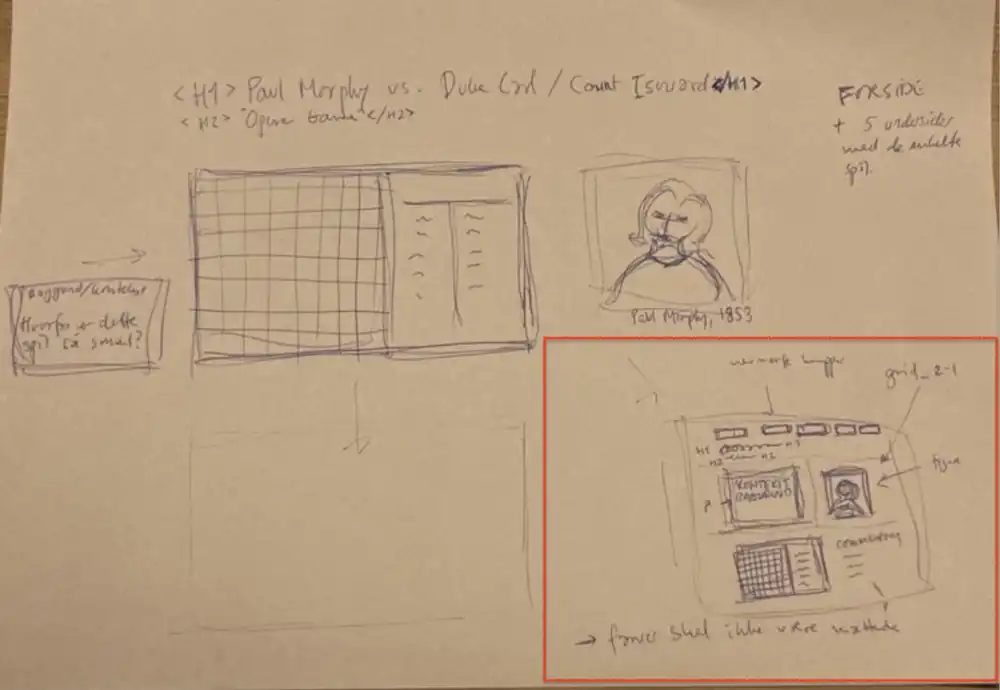 <H1> Paul Morphy vs. Duke Carl / Count Isouard </H1>
<H2> "Opera Game" </H2>
FORSIDE
+ 5 undersider
med de enkelte
spil.
Baggrund/kontekst
Hvorfor er dette
spil så smukt?
Paul Morphy, 1853
grid_2-1
H1 H1
H2 H2
figure
KONTEKST
BAGGRUND
P
commentary
→ farver skal ikke være mættede